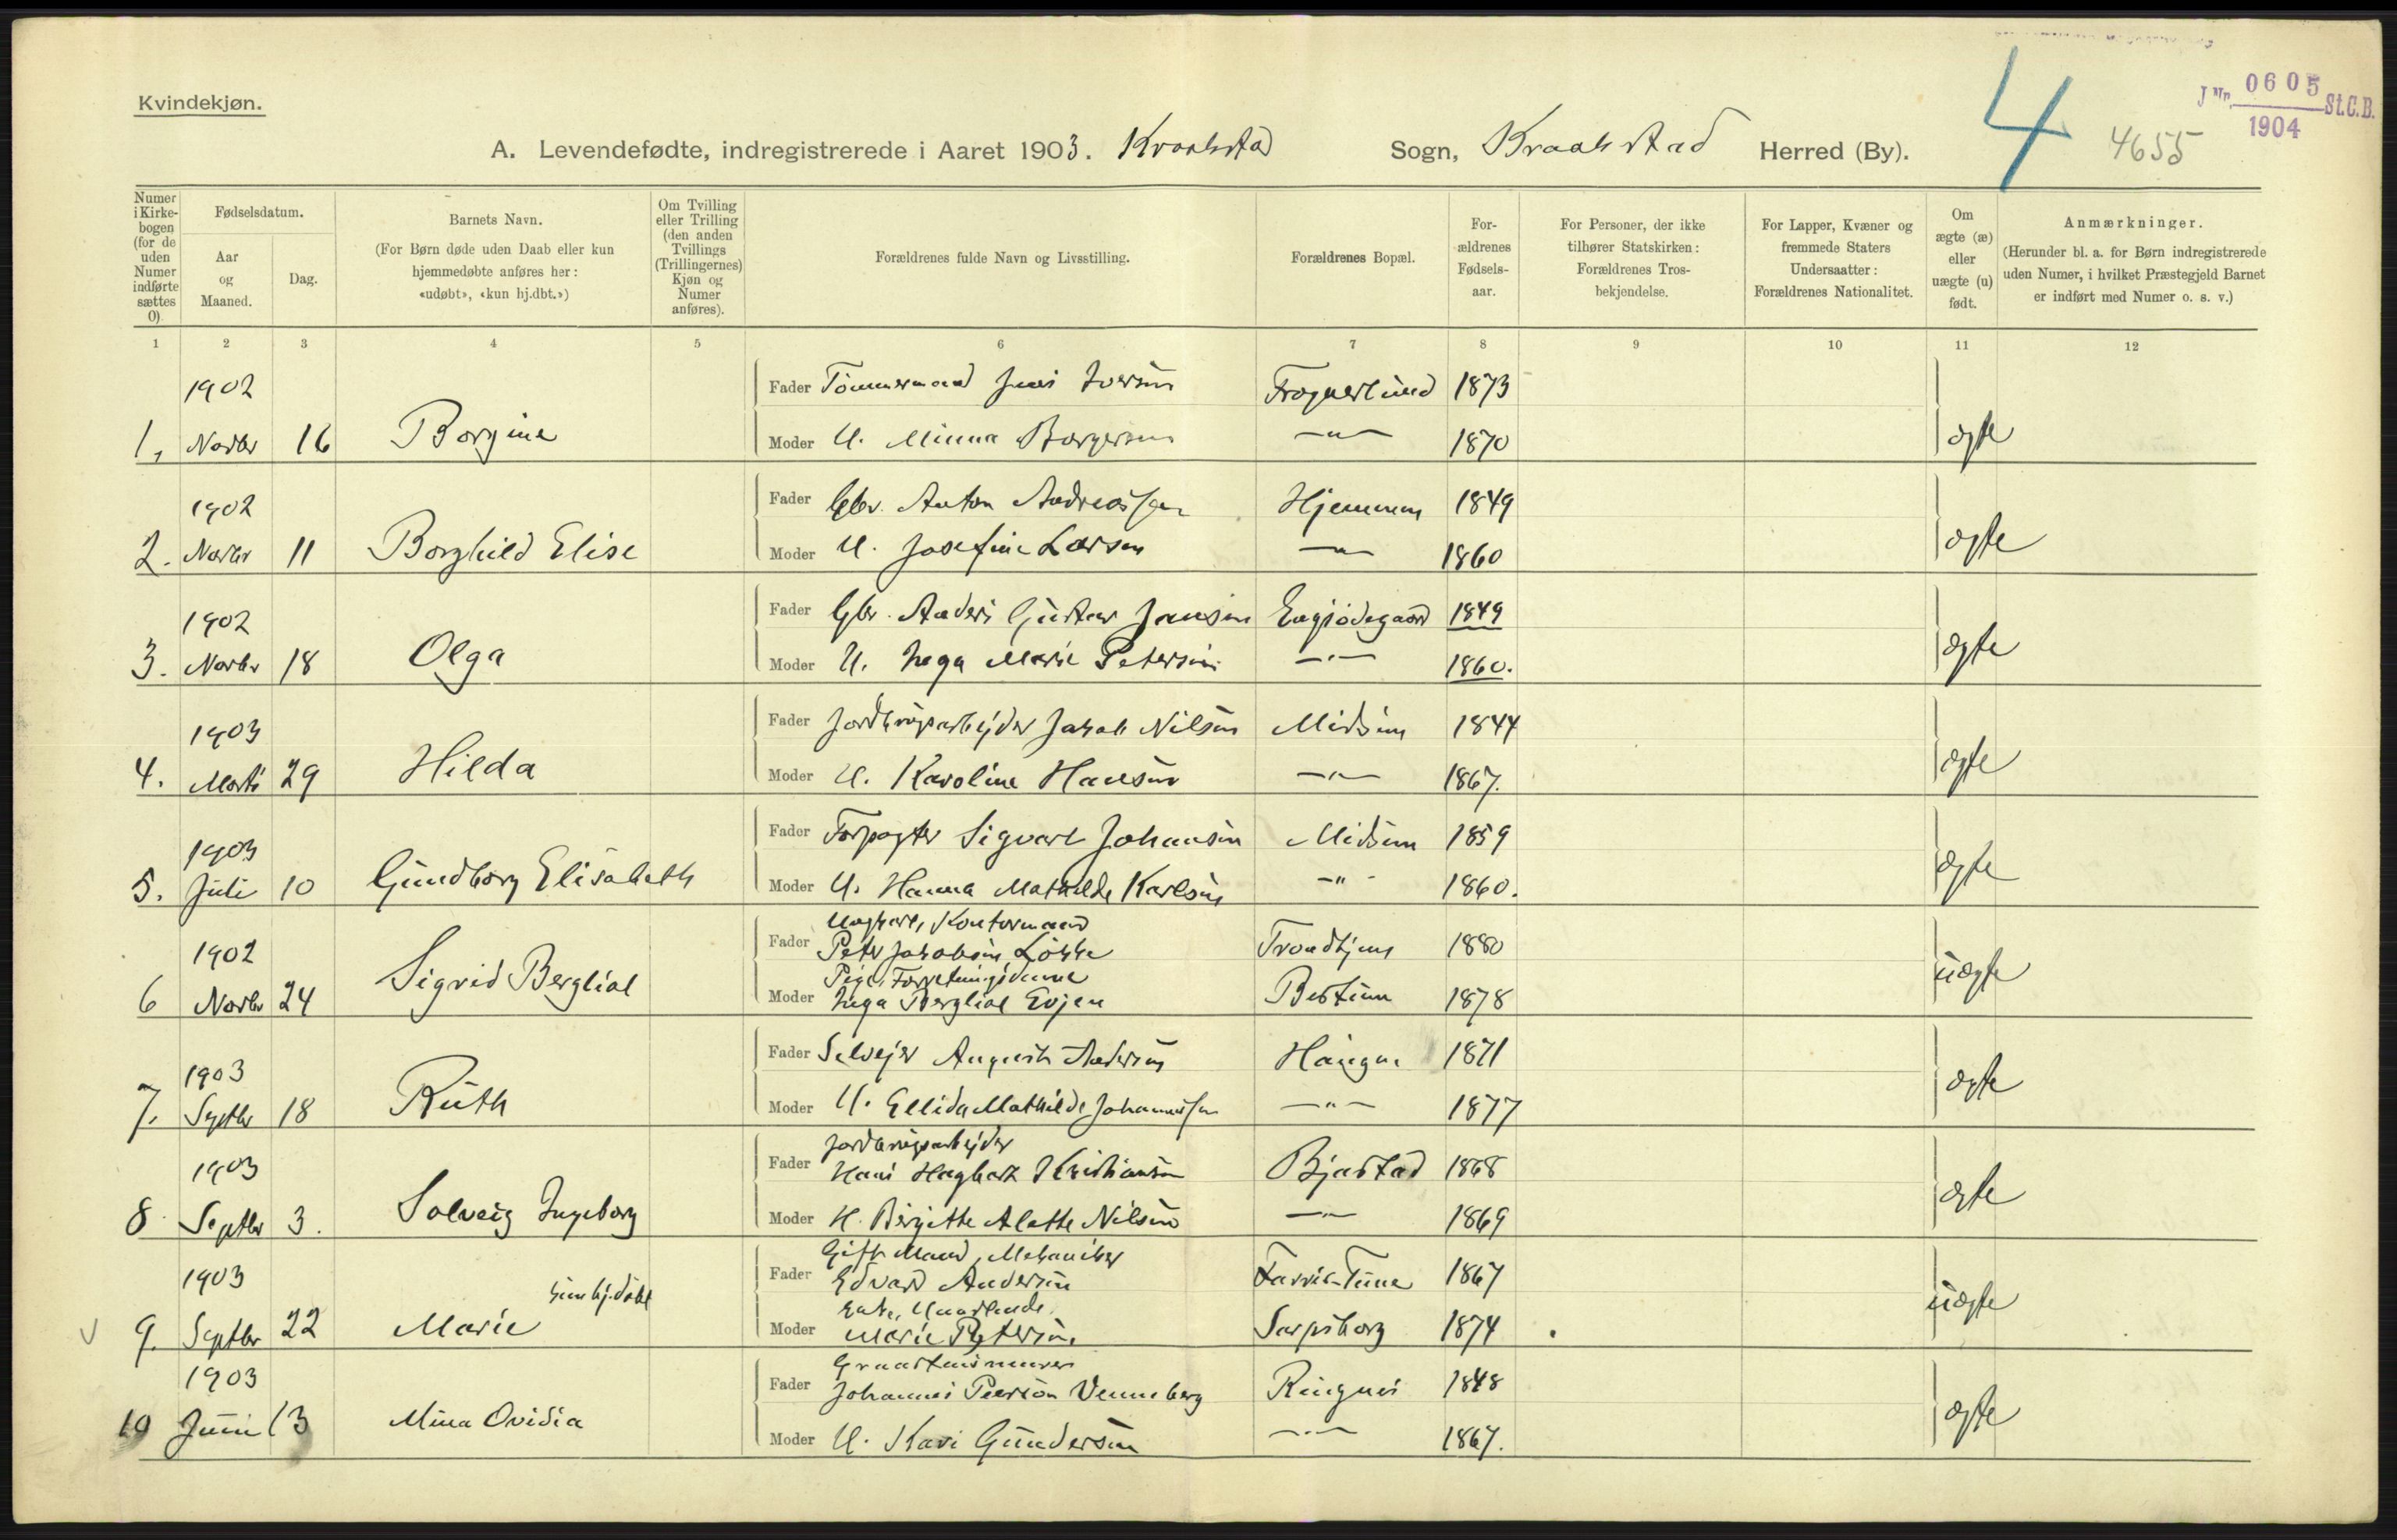 Kvindekjøn.
4
J Nr. 0605 St.C.B.
1904
4655
A. Levendefødte, indregistrerede i Aaret 1903. Kraakstad Sogn, Kraakstad Herred (By).
Numer i Kirkebogen (for de uden Numer indførte sættes 0)
Fødselsdatum.
Aar og Maaned.
Dag.
Barnets Navn.
(For Børn døde uden Daab eller kun hjemmedøbte anføres her: «udøbt», «kun hj.dbt.»)
Om Tvilling eller Trilling (den anden Tvillings (Trillingernes) Kjøn og Numer anføres).
Forældrenes fulde Navn og Livsstilling.
Forældrenes Bopæl.
Forældrenes Fødselsaar.
For Personer, der ikke tilhører Statskirken: Forældrenes Trosbekjendelse.
For Lapper, Kvæner og fremmede Staters Undersaatter: Forældrenes Nationalitet.
Om ægte (æ) eller uægte (u) født.
Anmærkninger.
(Herunder bl. a. for Børn indregistrerede uden Numer, i hvilket Præstegjeld Barnet er indført med Numer o. s. v.)
1 2 3 4 5 6 7 8 9 10 11 12
1902 Fader Tömmermand Jens Iversen Frognerlund 1873
1, Novbr 16 Borgine Moder U. Minna Borgersen —"— 1870 ægte
1902 Fader Gbr. Anton Andreassen Hjemmen 1849
2. Novbr 11 Borghild Elise Moder U. Josefine Larsen —"— 1860 ægte
1902 Fader Gbr. Anders Gustav Jansen 1849
3. Novbr 18 Olga Moder U. Inga Marie Petersen —"— 1860. ægte
1903 Fader Jordbrugsarbejder Jakob Nilsen Midsem 1844
4. Marts 29 Hilda Moder U. Karoline Hansen —"— 1867. ægte
1903 Fader Forpagter Sigvart Johansen Midsem 1859
5. Juli 10 Gundborg Elisabeth Moder U. Hanna Mathilde Karlsen —"— 1860. ægte
Ungkarl, Kontormand
1902 Fader Peter Jakobsen Lökke Trondhjem 1880
Pige, Forretningsdame
6 Novbr 24 Sigrid Bergliot Moder Inga Bergliot Evjen Bestum 1878 uægte
1903 Fader Selvejer August Andersen Haugen 1871
7. Septbr 18 Ruth Moder U. Ellida Mathilde Johannessen —"— 1877 ægte
Jordbrugsarbejder
1903 Fader Hans Hagbart Kristiansen Bjastad 1868
8 Septbr 3. Solveig Ingeborg Moder H. Birgitte Alette Nilsen —"— 1869 ægte
Gift Mand, Mekaniker
1903 Fader Edvard Andersen 1867
kun hj.döbt Enke,
9. Septbr 22 Marie Moder Marie Petersen Sarpsborg 1874 uægte
Graastensmurer
1903 Fader Johannes Peerson Venneberg Ringnes 1848
10 Juni 13 Mina Ovidia Moder U. Kari Gundersen —"— 1867. ægte